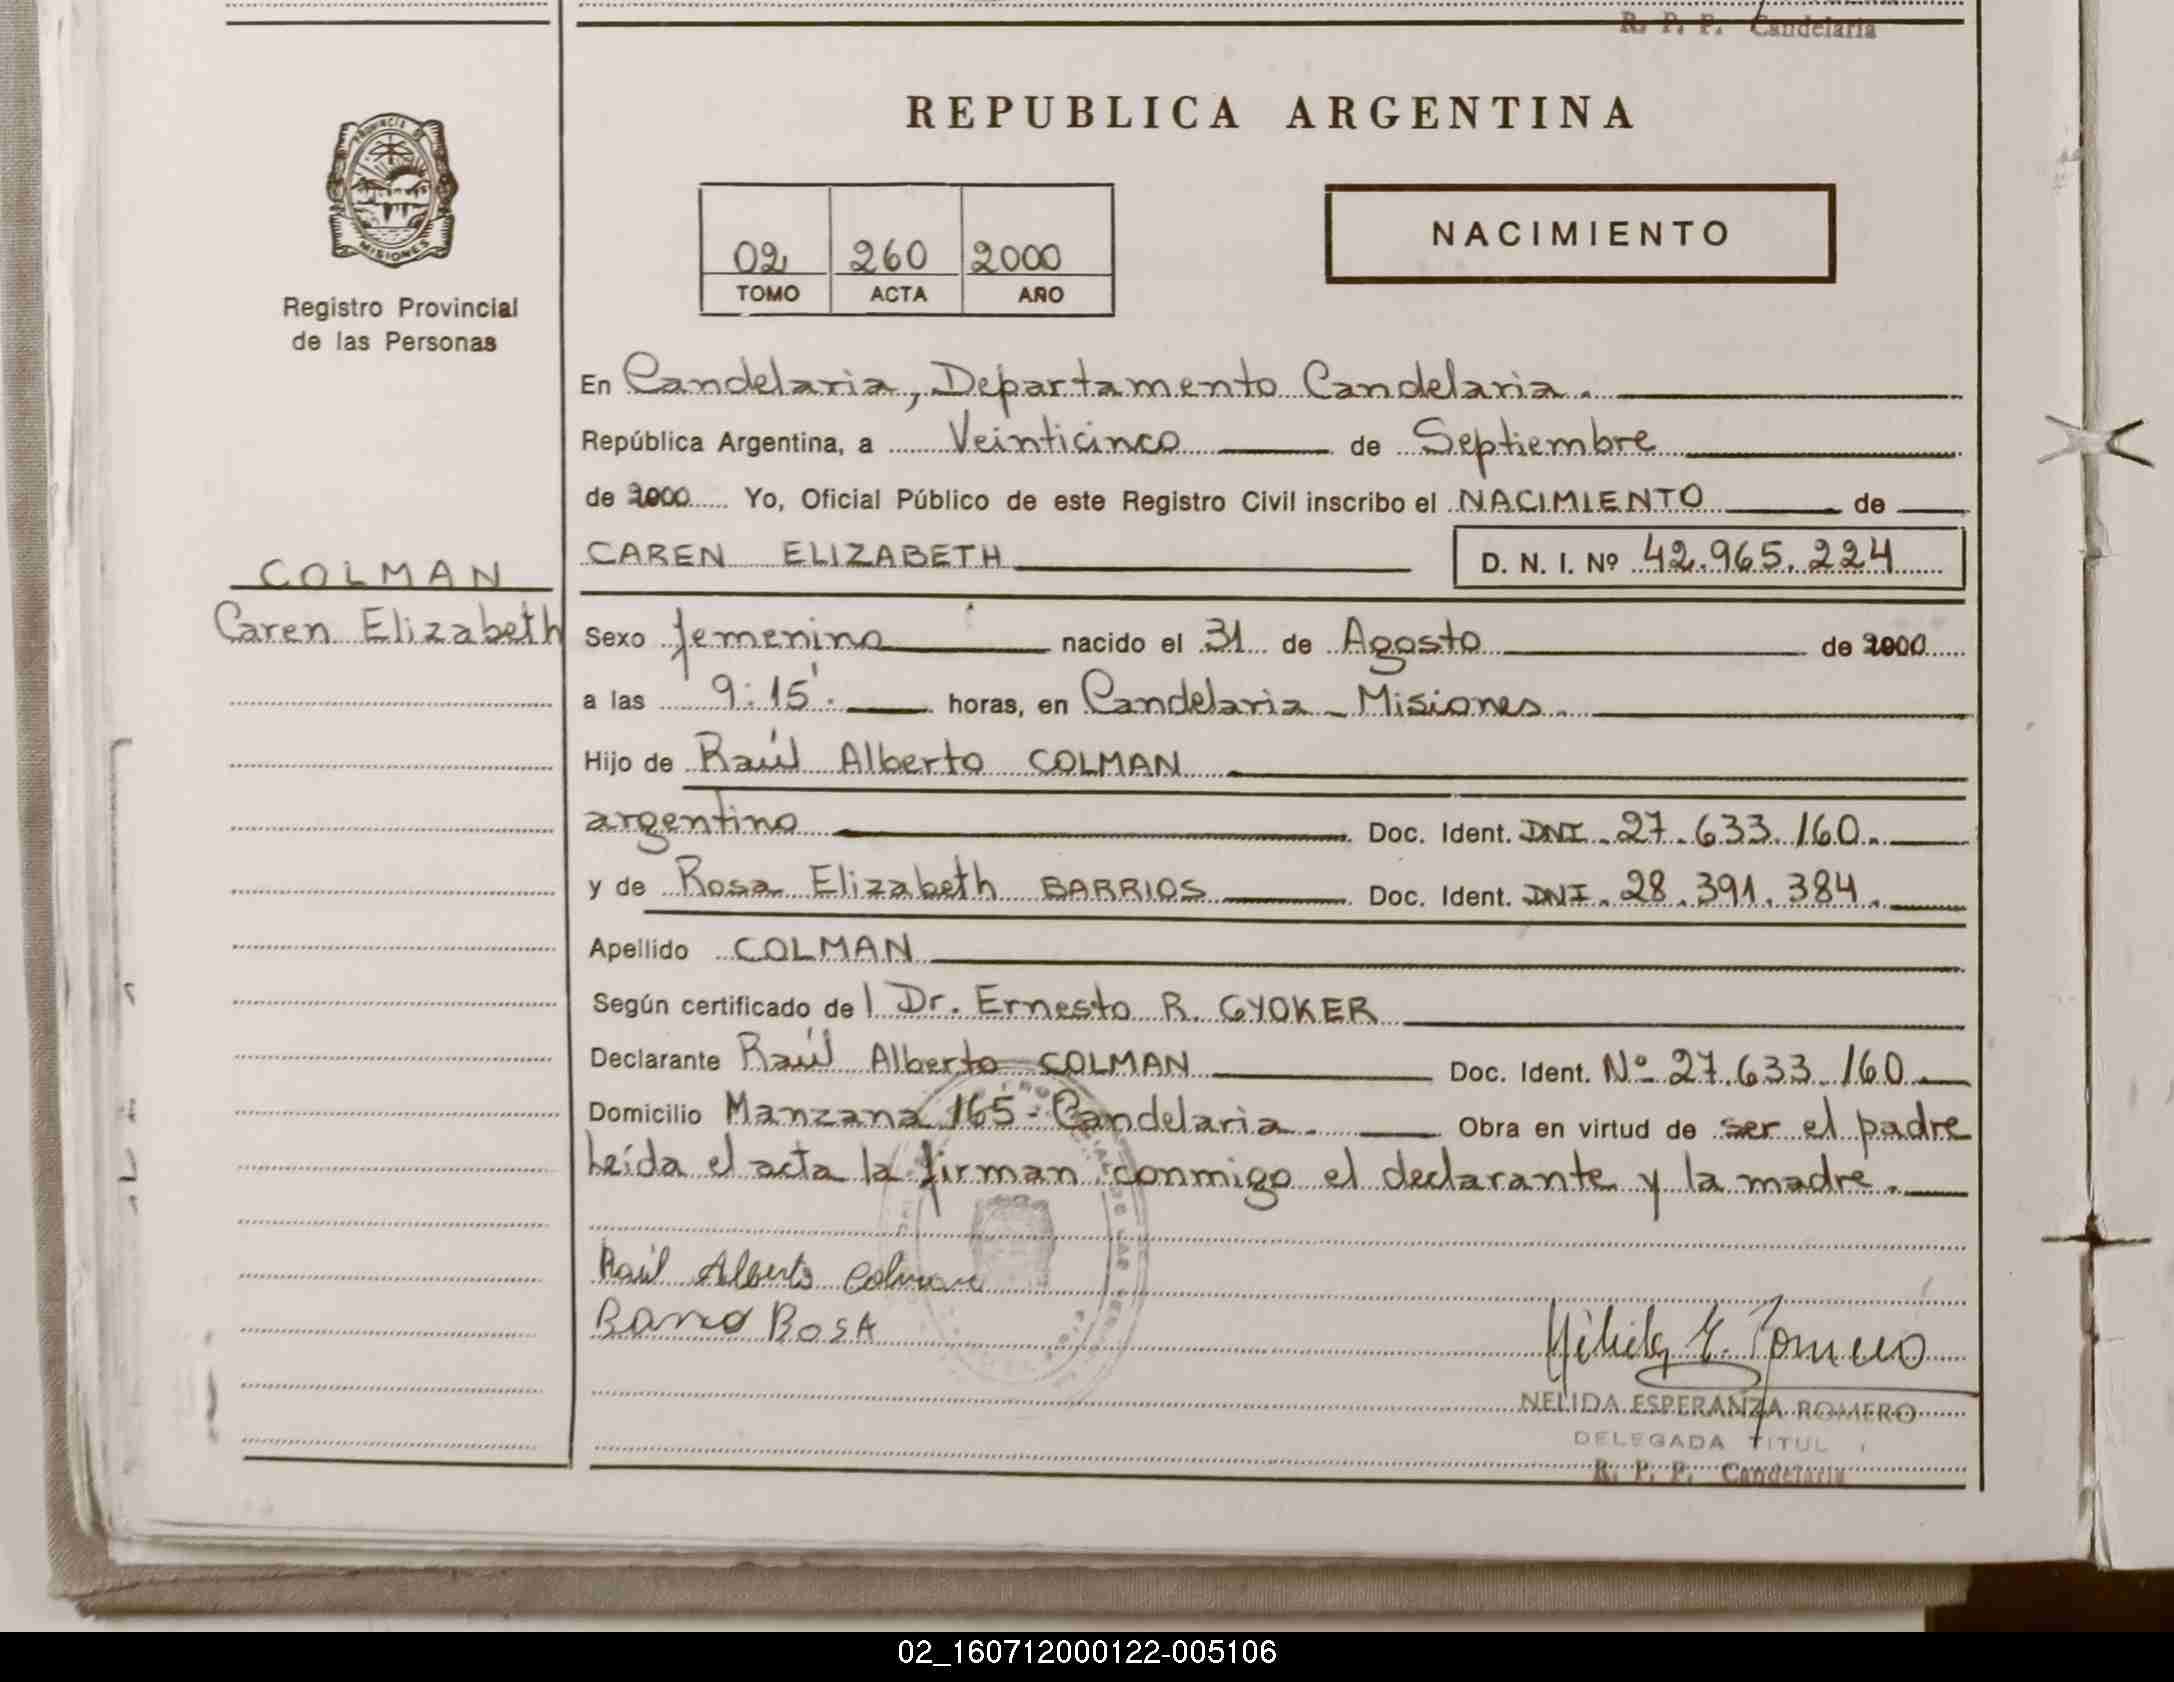 R. P. P. Candelaria
REPUBLICA ARGENTINA
PROVINCIA DE
MISIONES
Registro Provincial
de las Personas
02 260 2000
TOMO ACTA AÑO
NACIMIENTO
En Candelaria, Departamento Candelaria.
República Argentina, a Veinticinco de Septiembre
de 2000 Yo, Oficial Público de este Registro Civil inscribo el NACIMIENTO de
CAREN ELIZABETH D. N. I. Nº 42.965.224
COLMAN
Caren Elizabeth
Sexo femenino nacido el 31 de Agosto de 2000
a las 9:15'. horas, en Candelaria - Misiones.
Hijo de Raúl Alberto COLMAN
argentino Doc. Ident. DNI. 27.633.160.
y de Rosa Elizabeth BARRIOS Doc. Ident. DNI. 28.391.384.
Apellido COLMAN
Según certificado del Dr. Ernesto R. GYOKER
Declarante Raúl Alberto COLMAN Doc. Ident. Nº 27.633.160
Domicilio Manzana 165 - Candelaria. Obra en virtud de ser el padre
Leída el acta la firman conmigo el declarante y la madre.
Raúl Alberto Colman
Barrio Rosa
Nélida E. Romero
NELIDA ESPERANZA ROMERO
DELEGADA TITUL
R. P. P. Candelaria
02_160712000122-005106